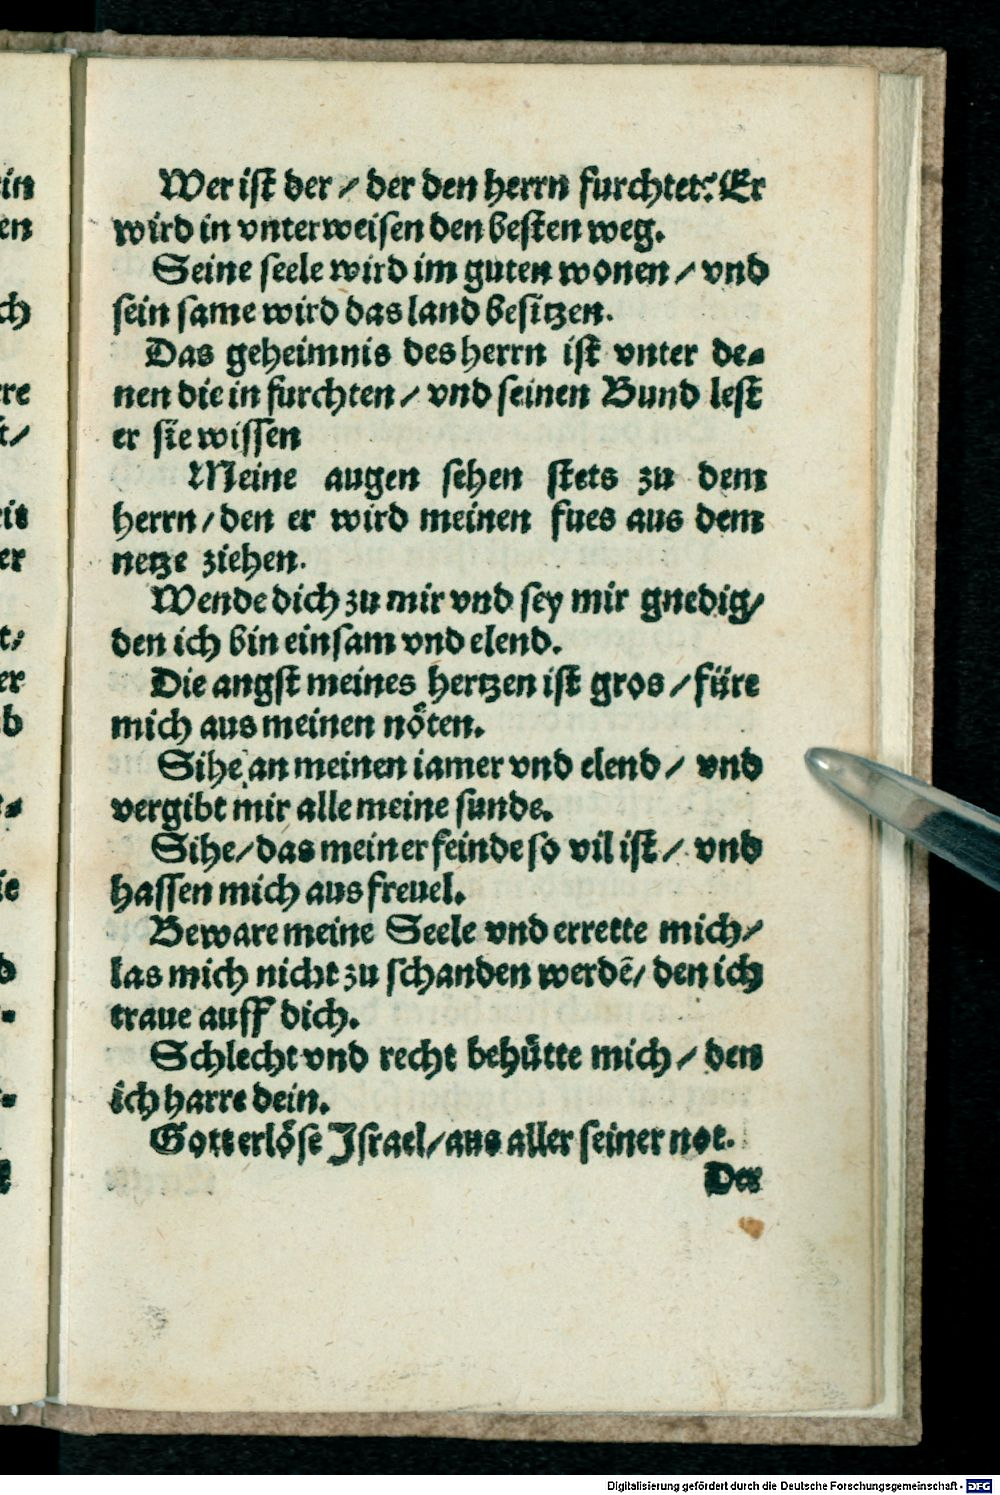 Wer ist der / der den herrn furchtet? Er
wird in vnterweisen den besten weg.
Seine seele wird im guten wonen / vnd
sein same wird das land besitzen.
Das geheimnis des herrn ist vnter de=
nen die in furchten / vnd seinen Bund lest
er sie wissen
Meine augen sehen stets zu dem
herrn / den er wird meinen fues aus dem
netze ziehen.
Wende dich zu mir vnd sey mir gnedig/
den ich bin einsam vnd elend.
Die angst meines hertzen ist gros / füre
mich aus meinen nöten.
Sihe an meinen iamer vnd elend / vnd
vergibt mir alle meine sunde.
Sihe / das meiner feinde so vil ist / vnd
hassen mich aus freuel.
Beware meine Seele vnd errette mich /
las mich nicht zu schanden werdē / den ich
traue auff dich.
Schlecht vnd recht behütte mich / den
ich harre dein.
Gott erlöse Jsrael / aus aller seiner not.
Der
Digitalisierung gefördert durch die Deutsche Forschungsgemeinschaft - DFG